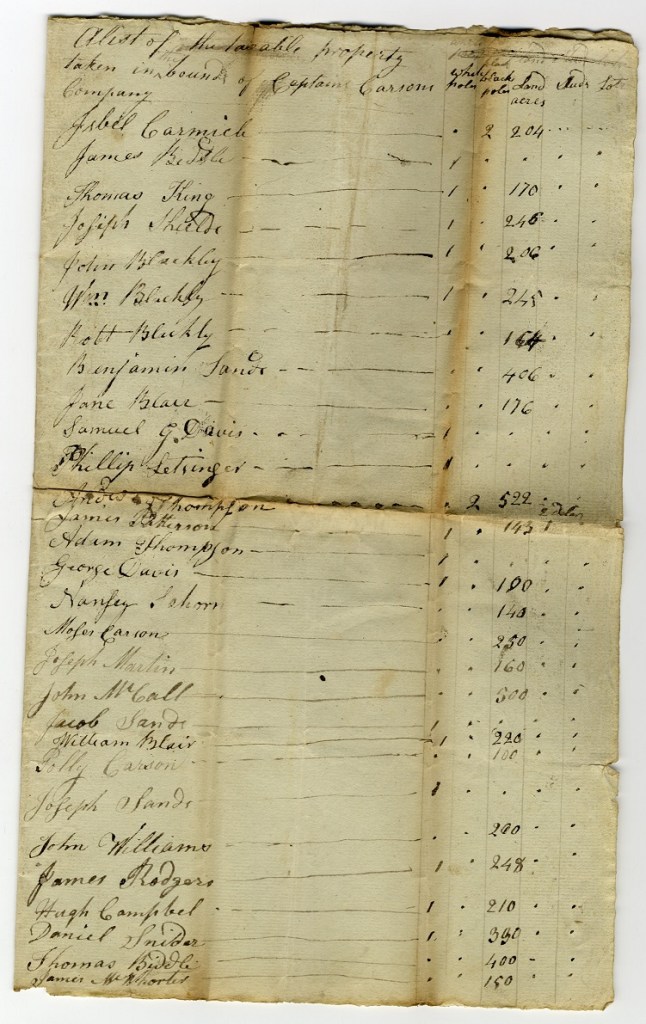 A list of the taxable property
taken in the bounds of Captain Carsons
Company
white poles black poles Land acres Studs Lots
Isbel Carmich 2 204
James Beddle 1
Thomas King 1 170
Joseph Shields 1 246
John Blackley 1 206
Wm Blackly 1 245
Robt Blickly 164
Benjamin Sands 406
Jane Blair 176
Samuel G. Davis 1
Phillip Letsinger 1
Thompson 2 522
James Patterson 1 143
Adam Thompson 1
George Davis 1 100
Nansey 140
Moses Carson 250
Joseph Martin 160
John McCall 300
Jacob Sands 1
William Blair 1 220
Polly Carson 100
Joseph Sands 1
John Williams 200
James Rodgers 1 248
Hugh Campbel 1 210
Daniel Snider 1 330
Thomas Biddle 400
James McWhorter 1 150